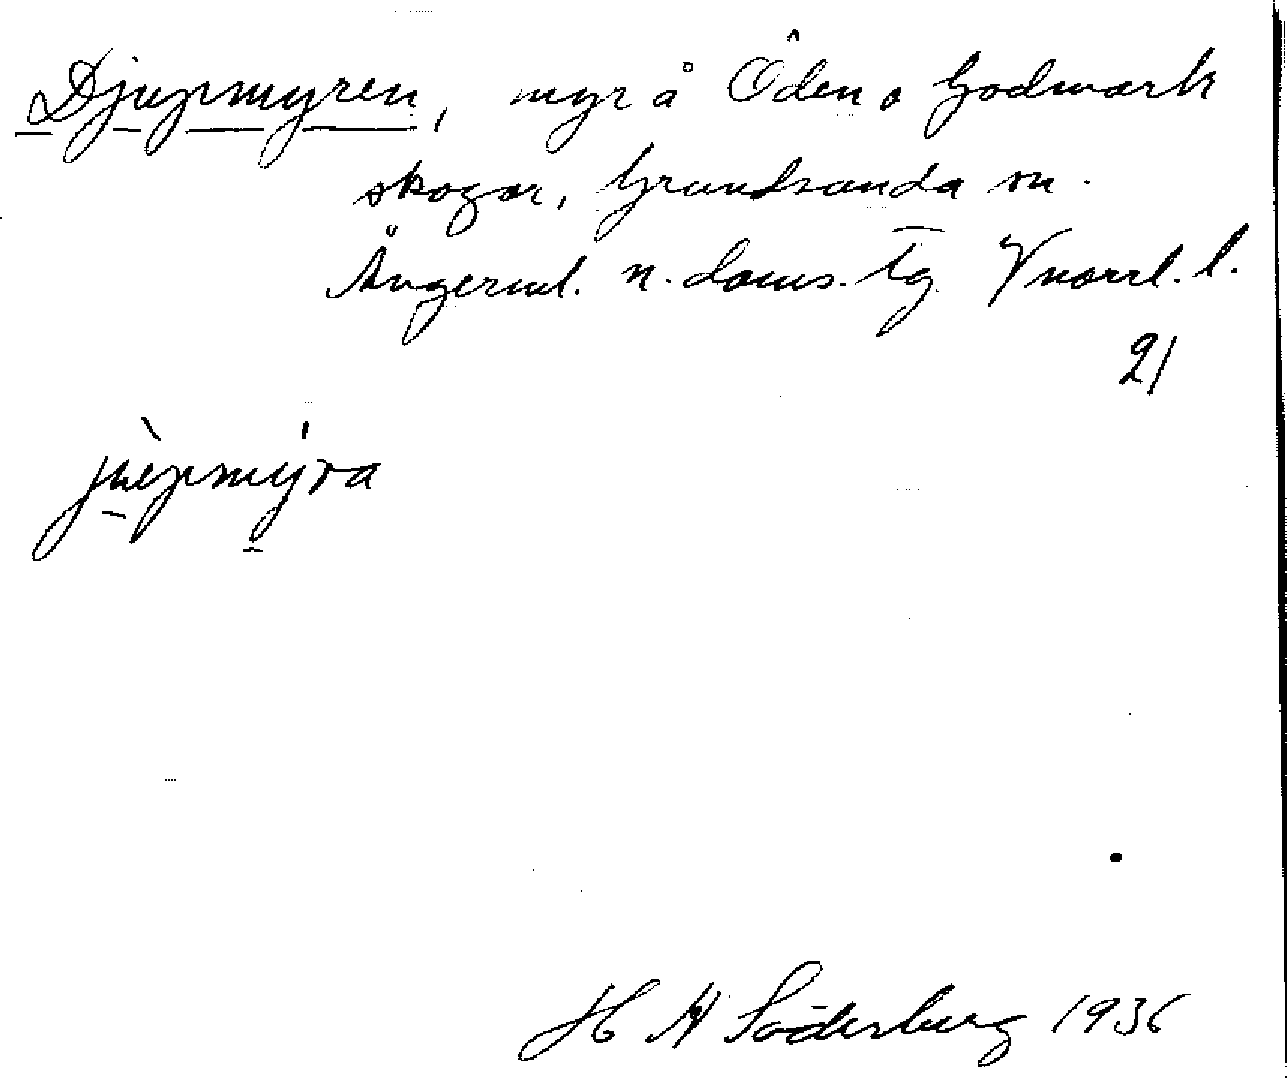 Djupmyren, myr å Öden o Godmark
skogar, Grundsunda sn.
Ångerml. n. doms. tg Vnorrl. l.
21
jùpmýra
H H Söderberg 1936